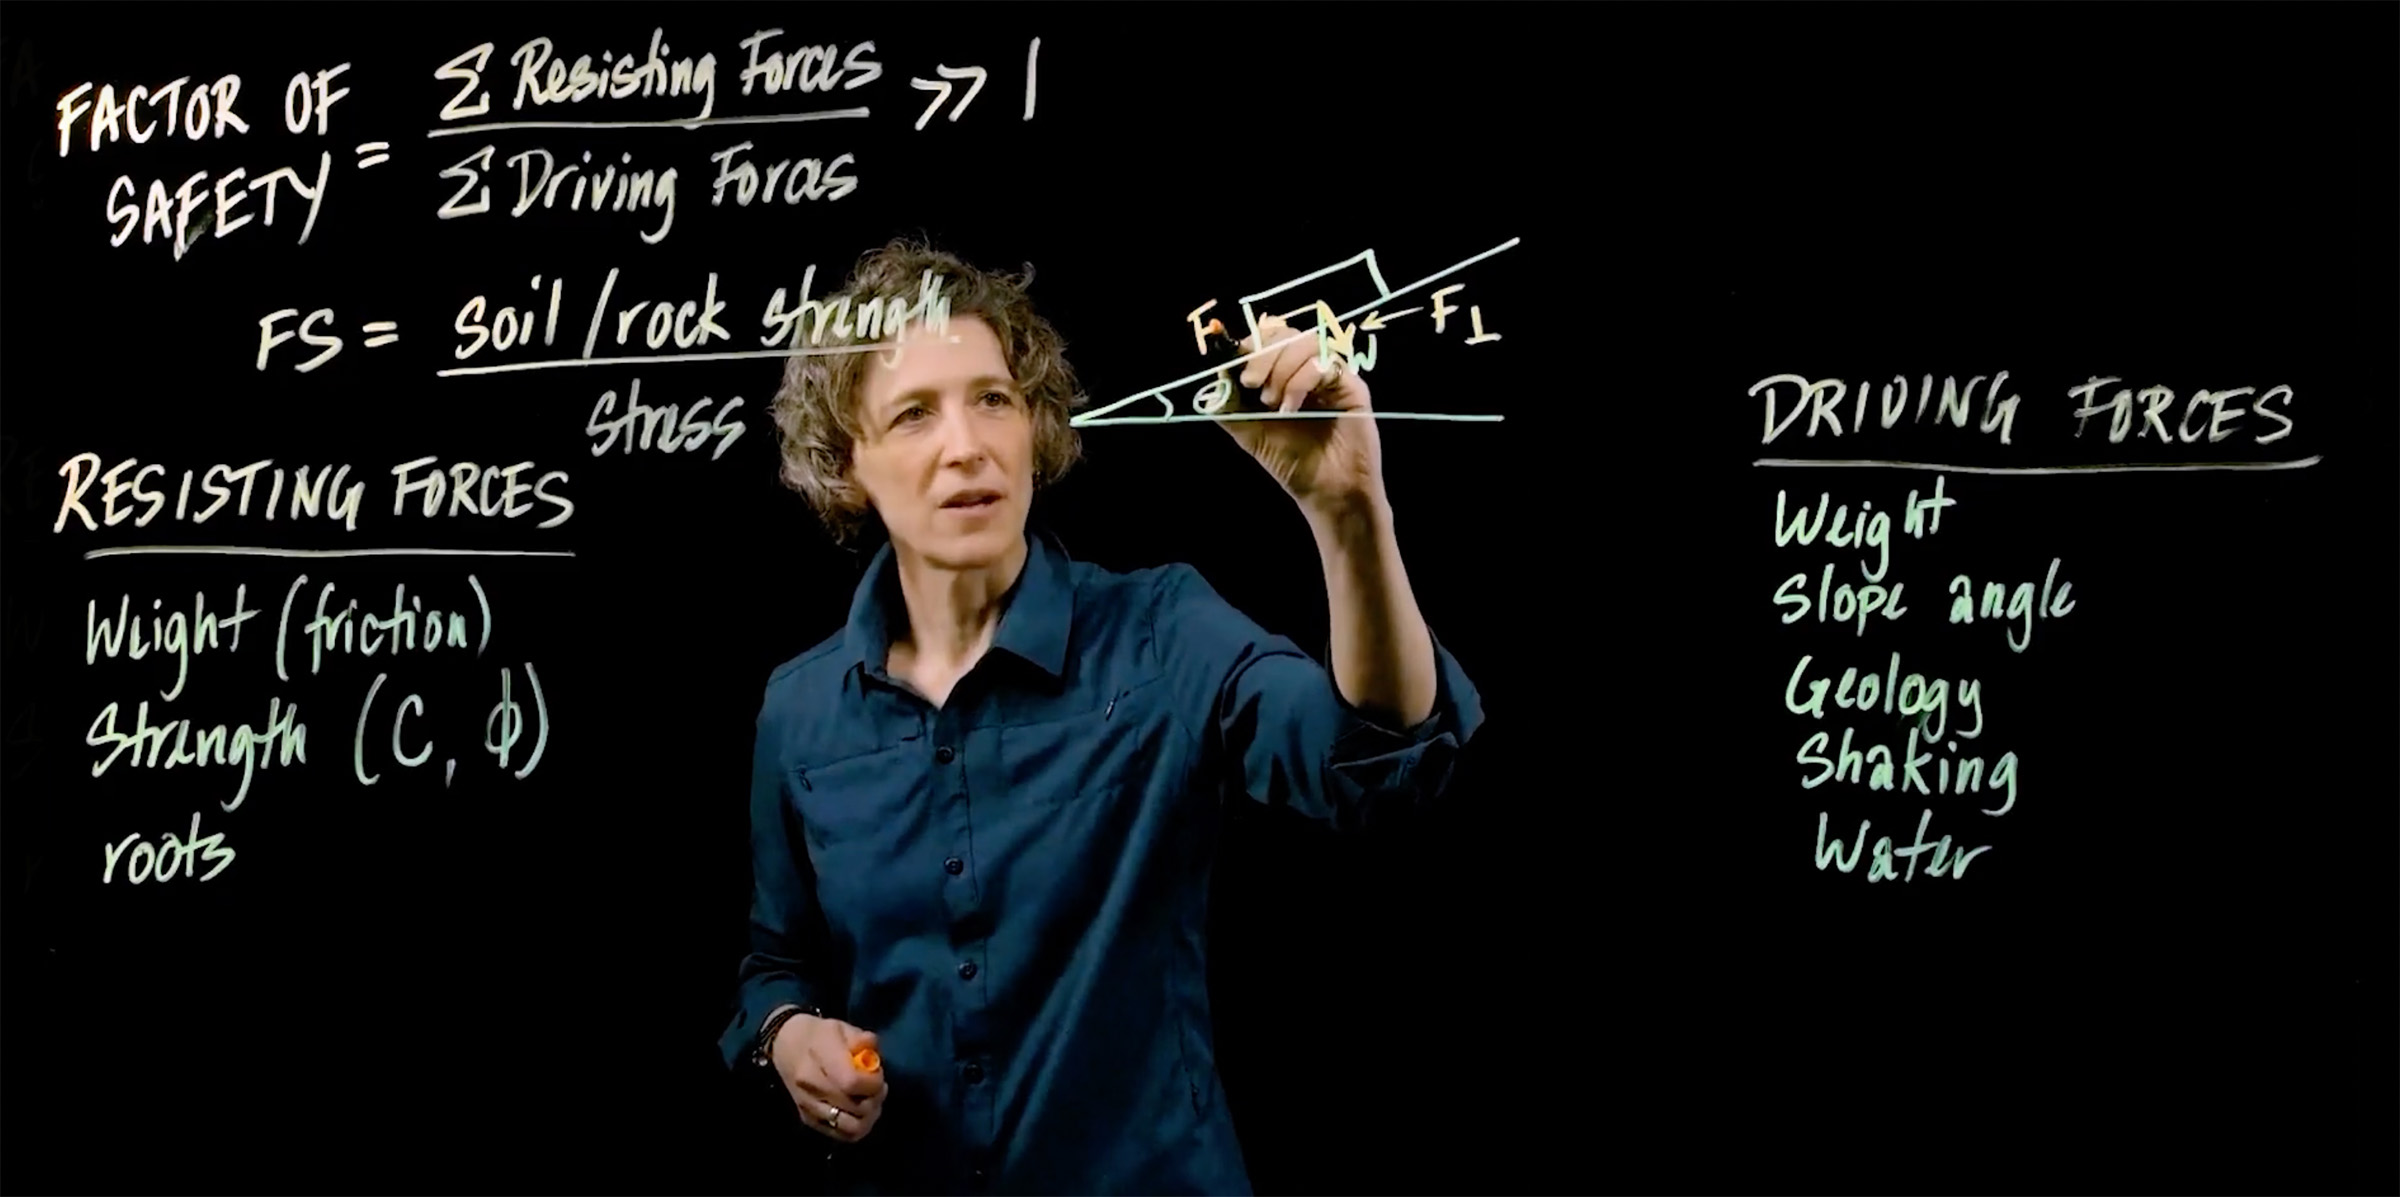 FACTOR OF SAFETY = Σ Resisting Forces / Σ Driving Forces >> 1
FS = soil/rock strength / stress
F
F⊥
W
θ
RESISTING FORCES
Weight (friction)
Strength (C, ϕ)
roots
DRIVING FORCES
Weight
Slope angle
Geology
Shaking
Water